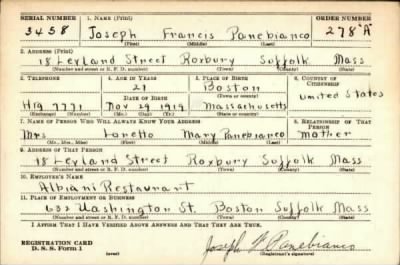 SERIAL NUMBER 1. NAME (Print) ORDER NUMBER
3458 Joseph Francis Panebianco 278 "A"
(First) (Middle) (Last)
2. ADDRESS (Print)
18 Leyland Street Roxbury Suffolk Mass
(Number and street or R. F. D. number) (Town) (County) (State)
3. TELEPHONE 4. AGE IN YEARS 5. PLACE OF BIRTH 6. COUNTRY OF CITIZENSHIP
21 Boston United States
DATE OF BIRTH (Town or county)
Hig 7771 Nov 29 1919 Massachusetts
(Exchange) (Number) (Mo.) (Day) (Yr.) (State or country)
7. NAME OF PERSON WHO WILL ALWAYS KNOW YOUR ADDRESS 8. RELATIONSHIP OF THAT PERSON
Mrs Loretto Mary Panebianco Mother
(Mr., Mrs., Miss) (First) (Middle) (Last)
9. ADDRESS OF THAT PERSON
18 Leyland Street Roxbury Suffolk Mass
(Number and street or R. F. D. number) (Town) (County) (State)
10. EMPLOYER'S NAME
Albiani Restaurant
11. PLACE OF EMPLOYMENT OR BUSINESS
632 Washington St. Boston Suffolk Mass
(Number and street or R. F. D. number) (Town) (County) (State)
I AFFIRM THAT I HAVE VERIFIED ABOVE ANSWERS AND THAT THEY ARE TRUE.
REGISTRATION CARD
D. S. S. Form 1 (over) Joseph F Panebianco
(Registrant's signature)